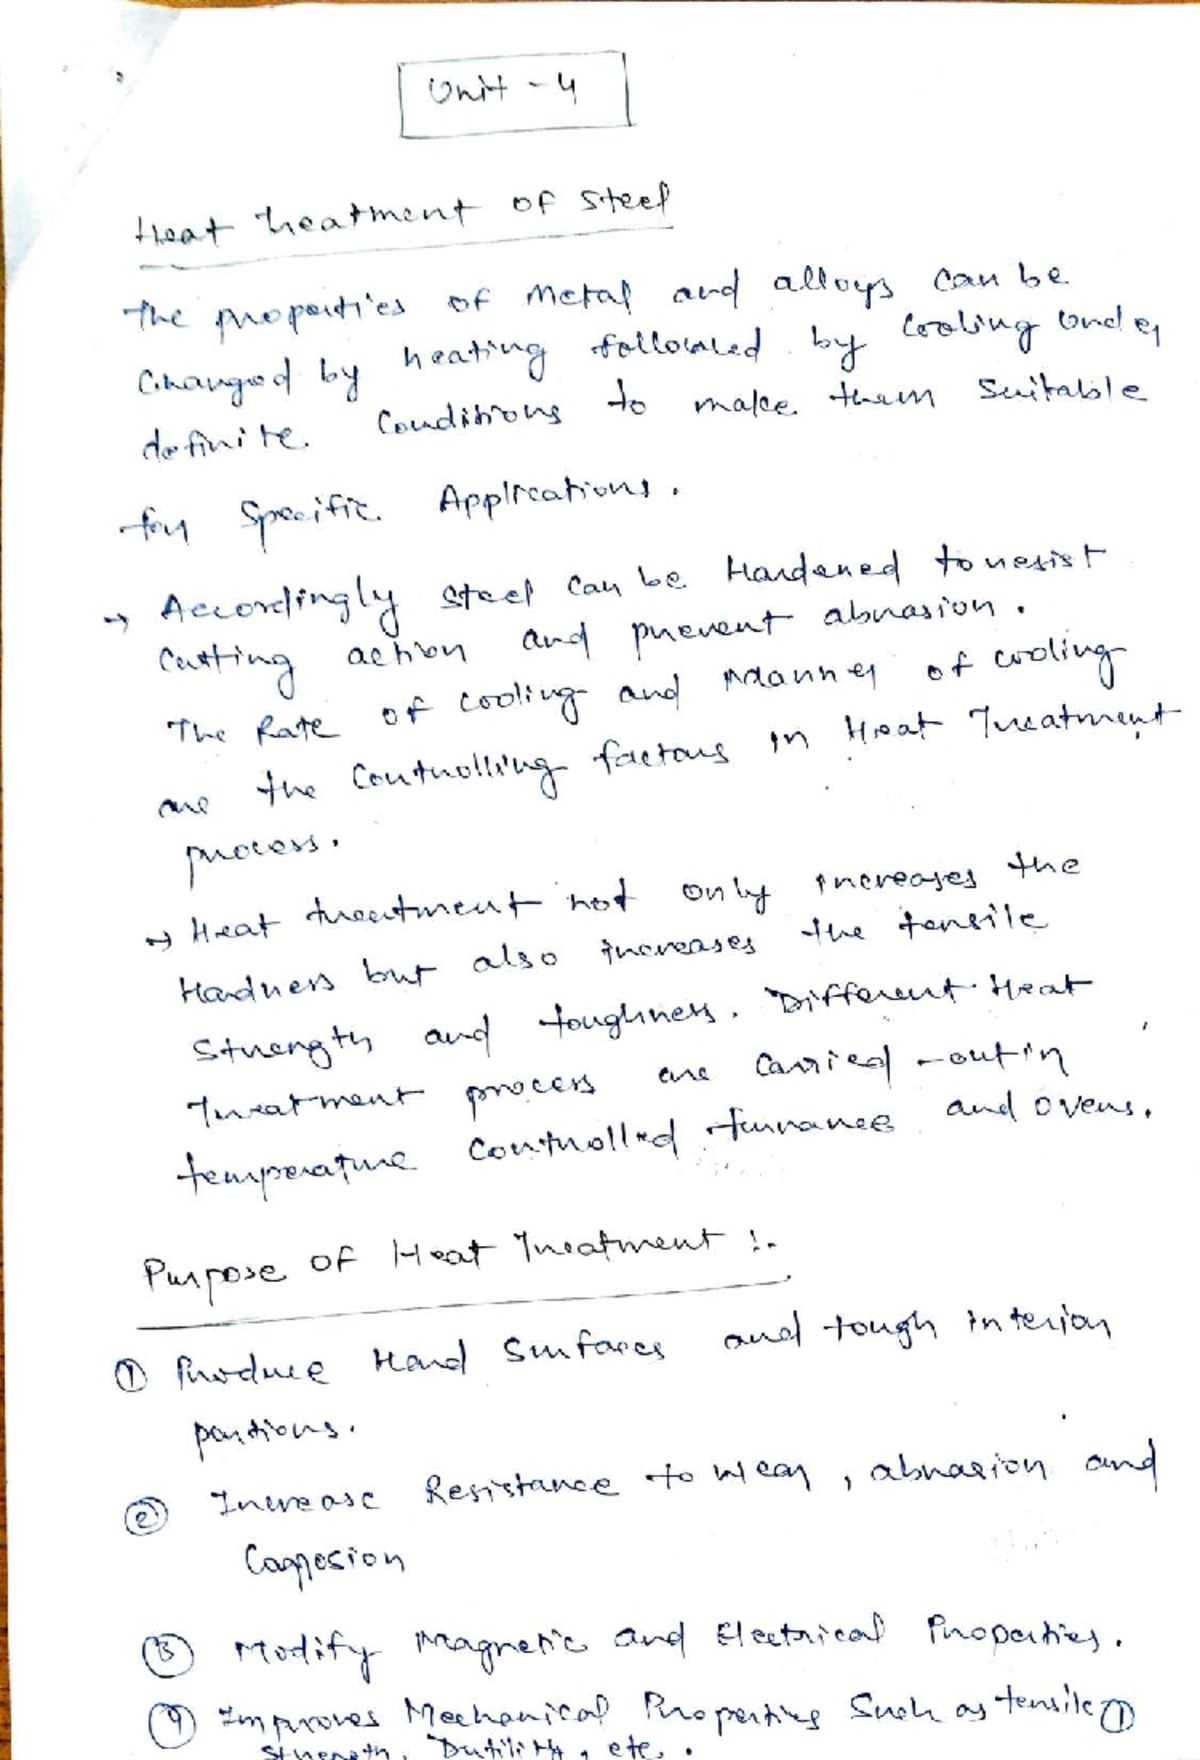 Unit - 4
Heat treatment of Steel
The properties of Metal and alloys can be
Changed by heating followed by Cooling Under
definite. Conditions to make them Suitable
for Specific Applications.
→ Accordingly Steel Can be Hardened to resist
Cutting action and prevent abrasion.
The Rate of cooling and Manner of cooling
are the Controlling factors in Heat Treatment
process.
→ Heat treatment not only increases the
Hardness but also increases the tensile
Strength and toughness. Different Heat
Treatment process are Carried - out in
temperature Controlled furnance and ovens.
Purpose of Heat Treatment :-
① Produce Hard Surfaces and tough interior
portions.
② Increase Resistance to wear, abrasion and
Corrosion
③ Modify Magnetic and Electrical Properties.
④ Improves Mechanical Properties Such as tensile ①
Strength, Dutility, etc.